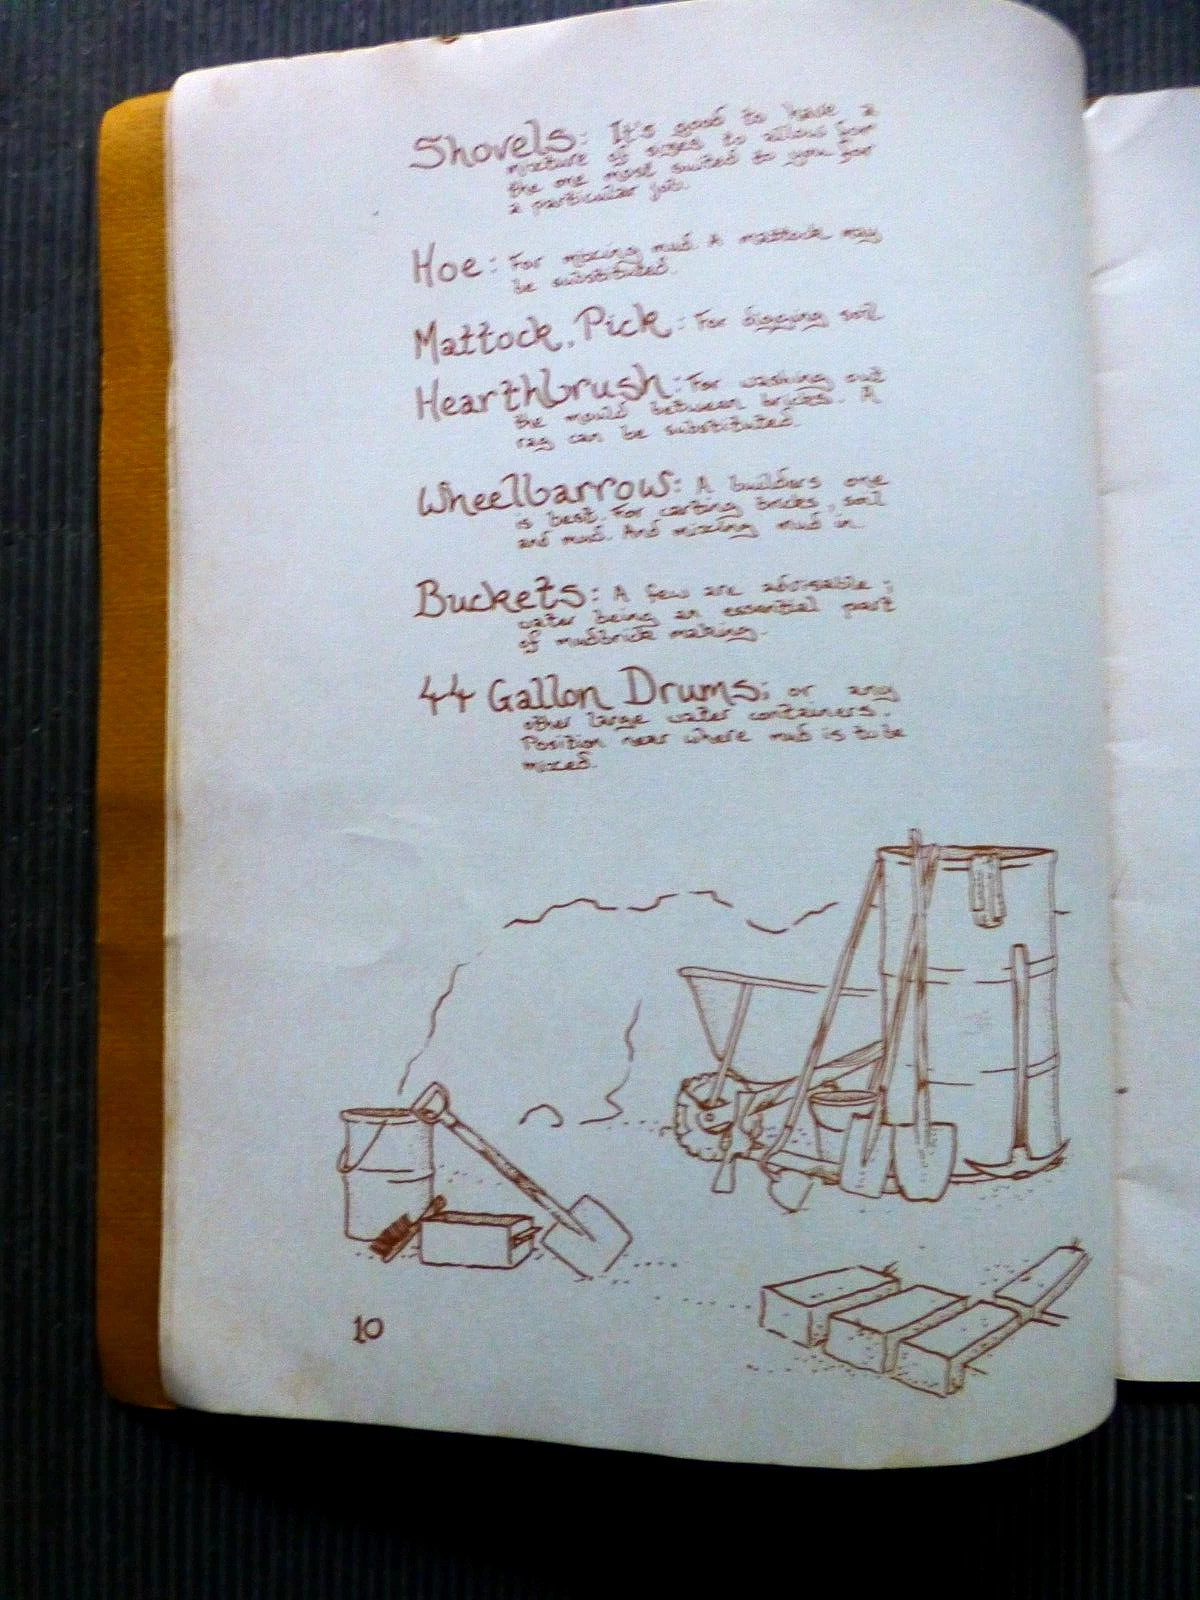 Shovels: It's good to have a
mixture of sizes to allow for
the one most suited to you for
a particular job.
Hoe: For mixing mud. A mattock may
be substituted.
Mattock, Pick: For digging soil
Hearthbrush: For washing out
the mould between bricks. A
rag can be substituted.
Wheelbarrow: A builders one
is best. For carting bricks, soil
and mud. And mixing mud in.
Buckets: A few are advisable;
water being an essential part
of mudbrick making.
44 Gallon Drums; or any
other large water containers.
Position near where mud is to be
mixed.
10